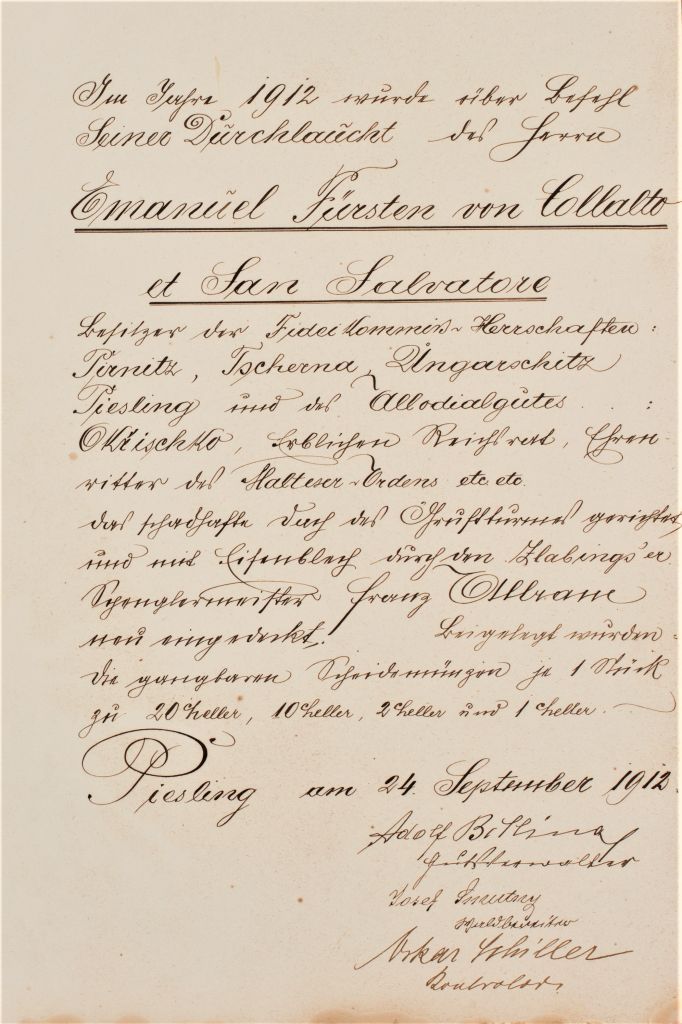 Im Jahre 1912 wurde über Befehl
Seiner Durchlaucht des Herrn
Emanuel Fürsten von Collalto
et San Salvatore
Besitzer der Fideikommiß-Herrschaften:
Pirnitz, Tscherna, Ungarschitz
Piesling und des Allodialgutes :
Okřischko, Erblichen Reichsrat, Ehren
ritter des Malteser-Ordens etc etc.
das schadhafte Dach des Gruftturmes gerichtet
und mit Eisenblech durch den Zlabings'er
Spenglermeister Franz Allram
neu eingedeckt. Beigelegt wurden
die gangbaren Scheidemünzen je 1 Stück
zu 20 heller, 10 heller, 2 heller und 1 heller.
Piesling am 24. September 1912.
Adolf
Gutsverwalter
Josef Smutny
Waldbereiter
Oskar Schiller
Kontrolor.